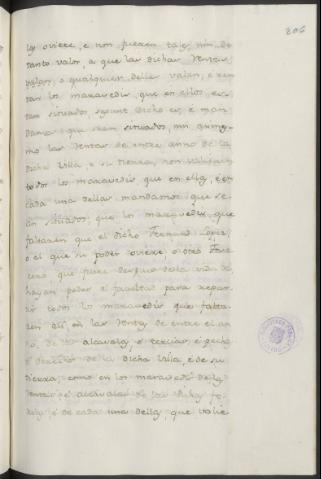 806
los oviere, e non fueren tales, nin de
tanto valor, a que las dichas Rentas
o qualquier dellas valan, e ren
tan los maravedis, que en ellos, es
tan situados segunt dicho es, e man
damos que sean situados, nin
las Rentas de entre anno de la
dicha Villa, e su tierra, non
todos los maravedis que en ellas, é en
cada una dellas mandamos que se
an situados, que los maravedis, que
faltaren que el dicho Ferrand Lopez,
o el que su poder oviere o otro
que fuere despues de la vida de
hayan poder é facultad para repar
tir todos los maravedis que falta
ren alli en las Rentas de entre el an
o, de las alcavalas, é tercias, é pechos
é derechos de la dicha Villa, é de su
tierra, como en los maravedis de las
Rentas, é alcavalas de los dichos
é de cada una dellas, que valie